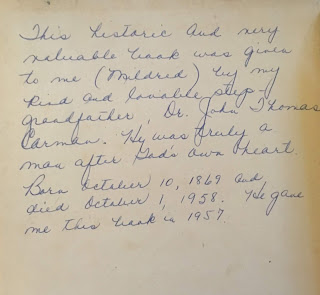 This historic and very
valuable book was given
to me (Mildred) by my
kind and lovable step-
grandfather, Dr. John Thomas
Carman. He was truly a
man after God's own heart.
Born October 10, 1869 and
died October 1, 1958. He gave
me this book in 1957.